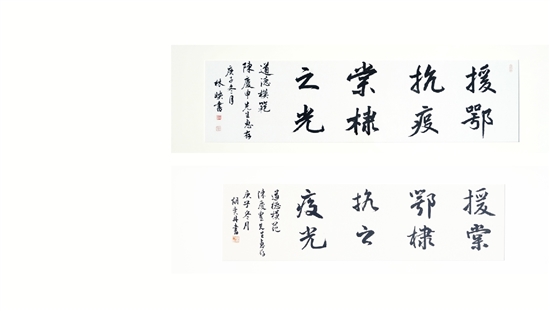 援鄂
抗疫
棠棣
之光
道德模範
陳慶申先生惠存
庚子冬月
林映書
援鄂抗疫
棠棣之光
道德模范
陳慶先生惠存
庚子冬月
胡書